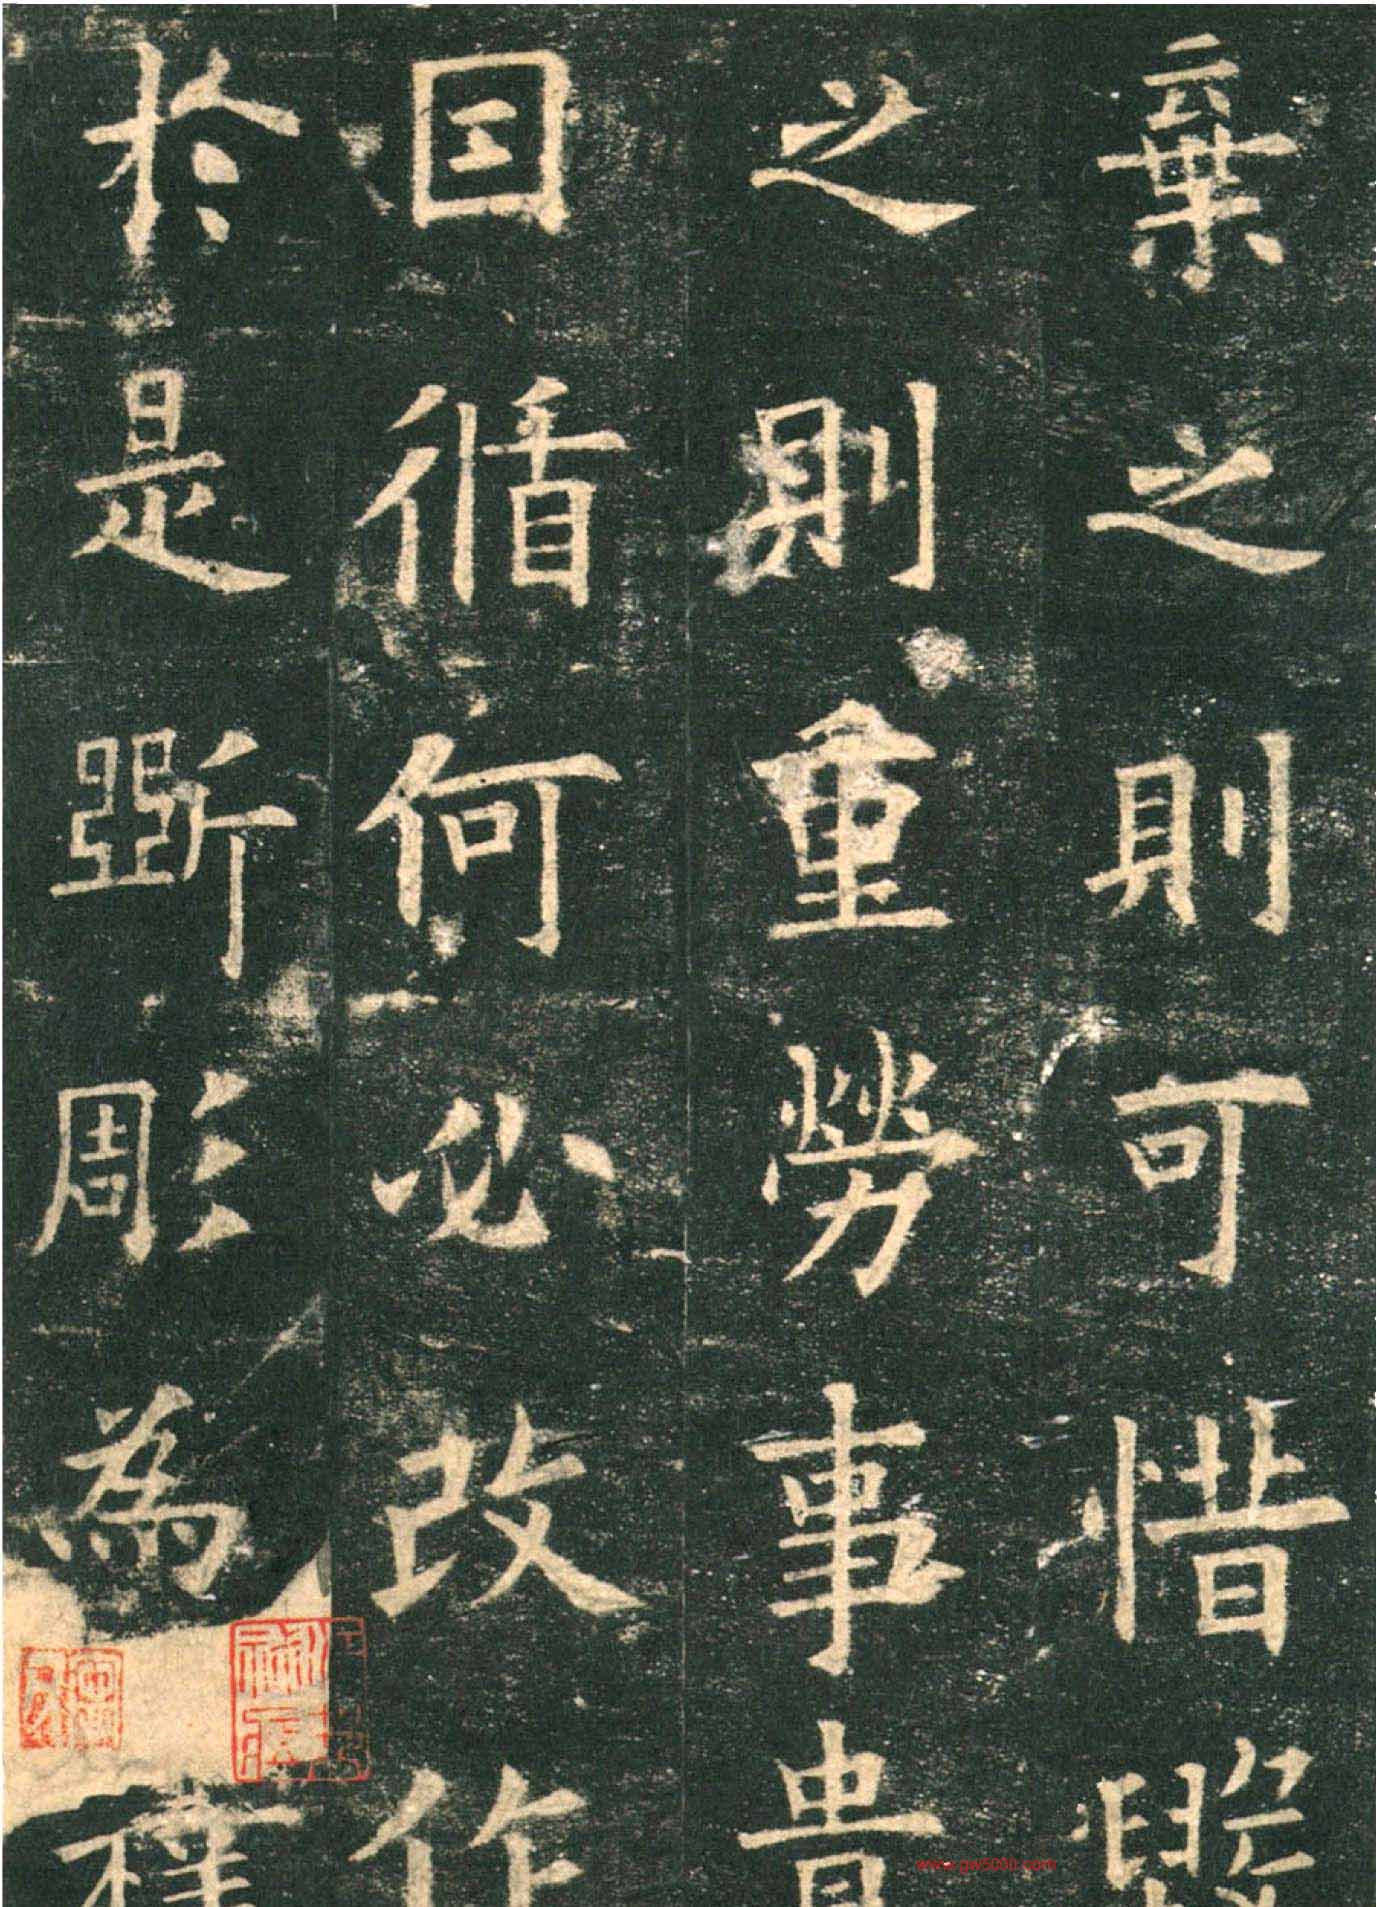 棄之則可惜毀
之則重勞事貴
因循何必改作
於是斲彫為樸
www.gw5000.com